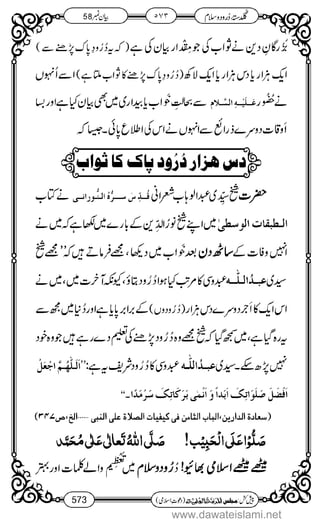 بیان نمبر 58 ۵۷۳ گلدستۂ دُرود و سلام
بُزُرگانِ دین نے ثواب کی جو مِقدار بیان کی ہے (کہ یہ دُرُودِ پاک پڑھنے سے)
ایک ہزار یا دس ہزار یا ایک لاکھ (دُرُودِ پاک پڑھنے کا ثواب ملتا ہے) اسے اُنہوں
نے حُضُور عَلَیْہِ السَّلَام سے بحالتِ خواب یا بیداری میں بھی بیان کیا ہے اور بسا
اَوقات دوسرے ذرائع سے اُنہوں نے اس کی اطلاع پائی۔ جیسا کہ۔
دس ہزار دُرُود پاک کا ثواب
حضرت سیِّدی شیخ عبدالوہاب شعرانی قُدِّسَ سِرُّہُ النُّوْرَانِی نے کتاب
الطبقات الوسطیٰ میں اپنے شیخ نورُالدِّین کے بارے میں لکھا ہے کہ میں نے
انہیں وفات کے ساٹھ دن بعد خواب میں دیکھا، مجھے فرماتے ہیں کہ ”مجھے شیخ
سیدی عبدُ اللّٰہ عبدوسی کا مرتب کیا ہوا دُرُود بتاؤ، کیونکہ آخرت میں، میں نے
اس ایک کا اَجر دوسرے دس ہزار (دُرُودوں) کے برابر پایا ہے اور دُنیا میں مجھ سے
یہ رہ گیا ہے، میں سمجھ گیا کہ شیخ مجھے وہ دُرُود پڑھنے کی تعلیم دے رہے ہیں جو وہ خود
نہیں پڑھ سکے۔ سیدی عبدُ اللّٰہ عبدوسی کا دُرُود شریف یہ ہے: ”اَللّٰھُمَّ اجْعَلْ
اَفْضَلَ صَلَوَاتِکَ اَبَداً وَ اَنْمٰی بَرَکَاتِکَ سَرْمَدًا۔“
(سعادة الدارین، الباب الثامن فی کیفیات الصلاة علی النبی ۔۔۔۔۔الخ، ص ۳۴۷)
صَلُّوْا عَلَی الْحَبِیْب! صَلَّی اللّٰہُ تَعَالٰی عَلٰی مُحَمَّد
میٹھے میٹھے اسلامی بھائیو! دُرُود و سلام میں تَعْظِیْم والے کلمات اور بہتر
573 پیش کش:
www.dawateislami.net